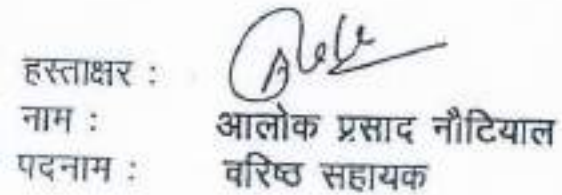 हस्ताक्षर :
नाम : आलोक प्रसाद नौटियाल
पदनाम : वरिष्ठ सहायक